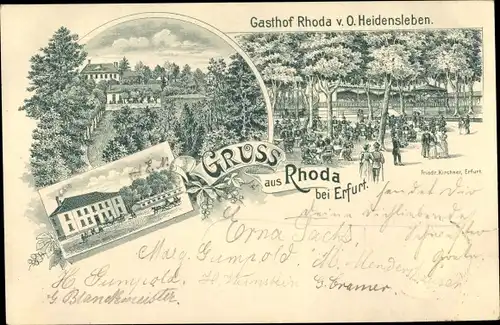 Gasthof Rhoda v. O. Heidensleben.
GRUSS
aus Rhoda
bei Erfurt.
Friedr. Kirchner, Erfurt.
sendet Dir
Deine
Erna Sachs
Marg. Gumpold.
H. Gumpold.
G. Cramer
G Blanckmeister.